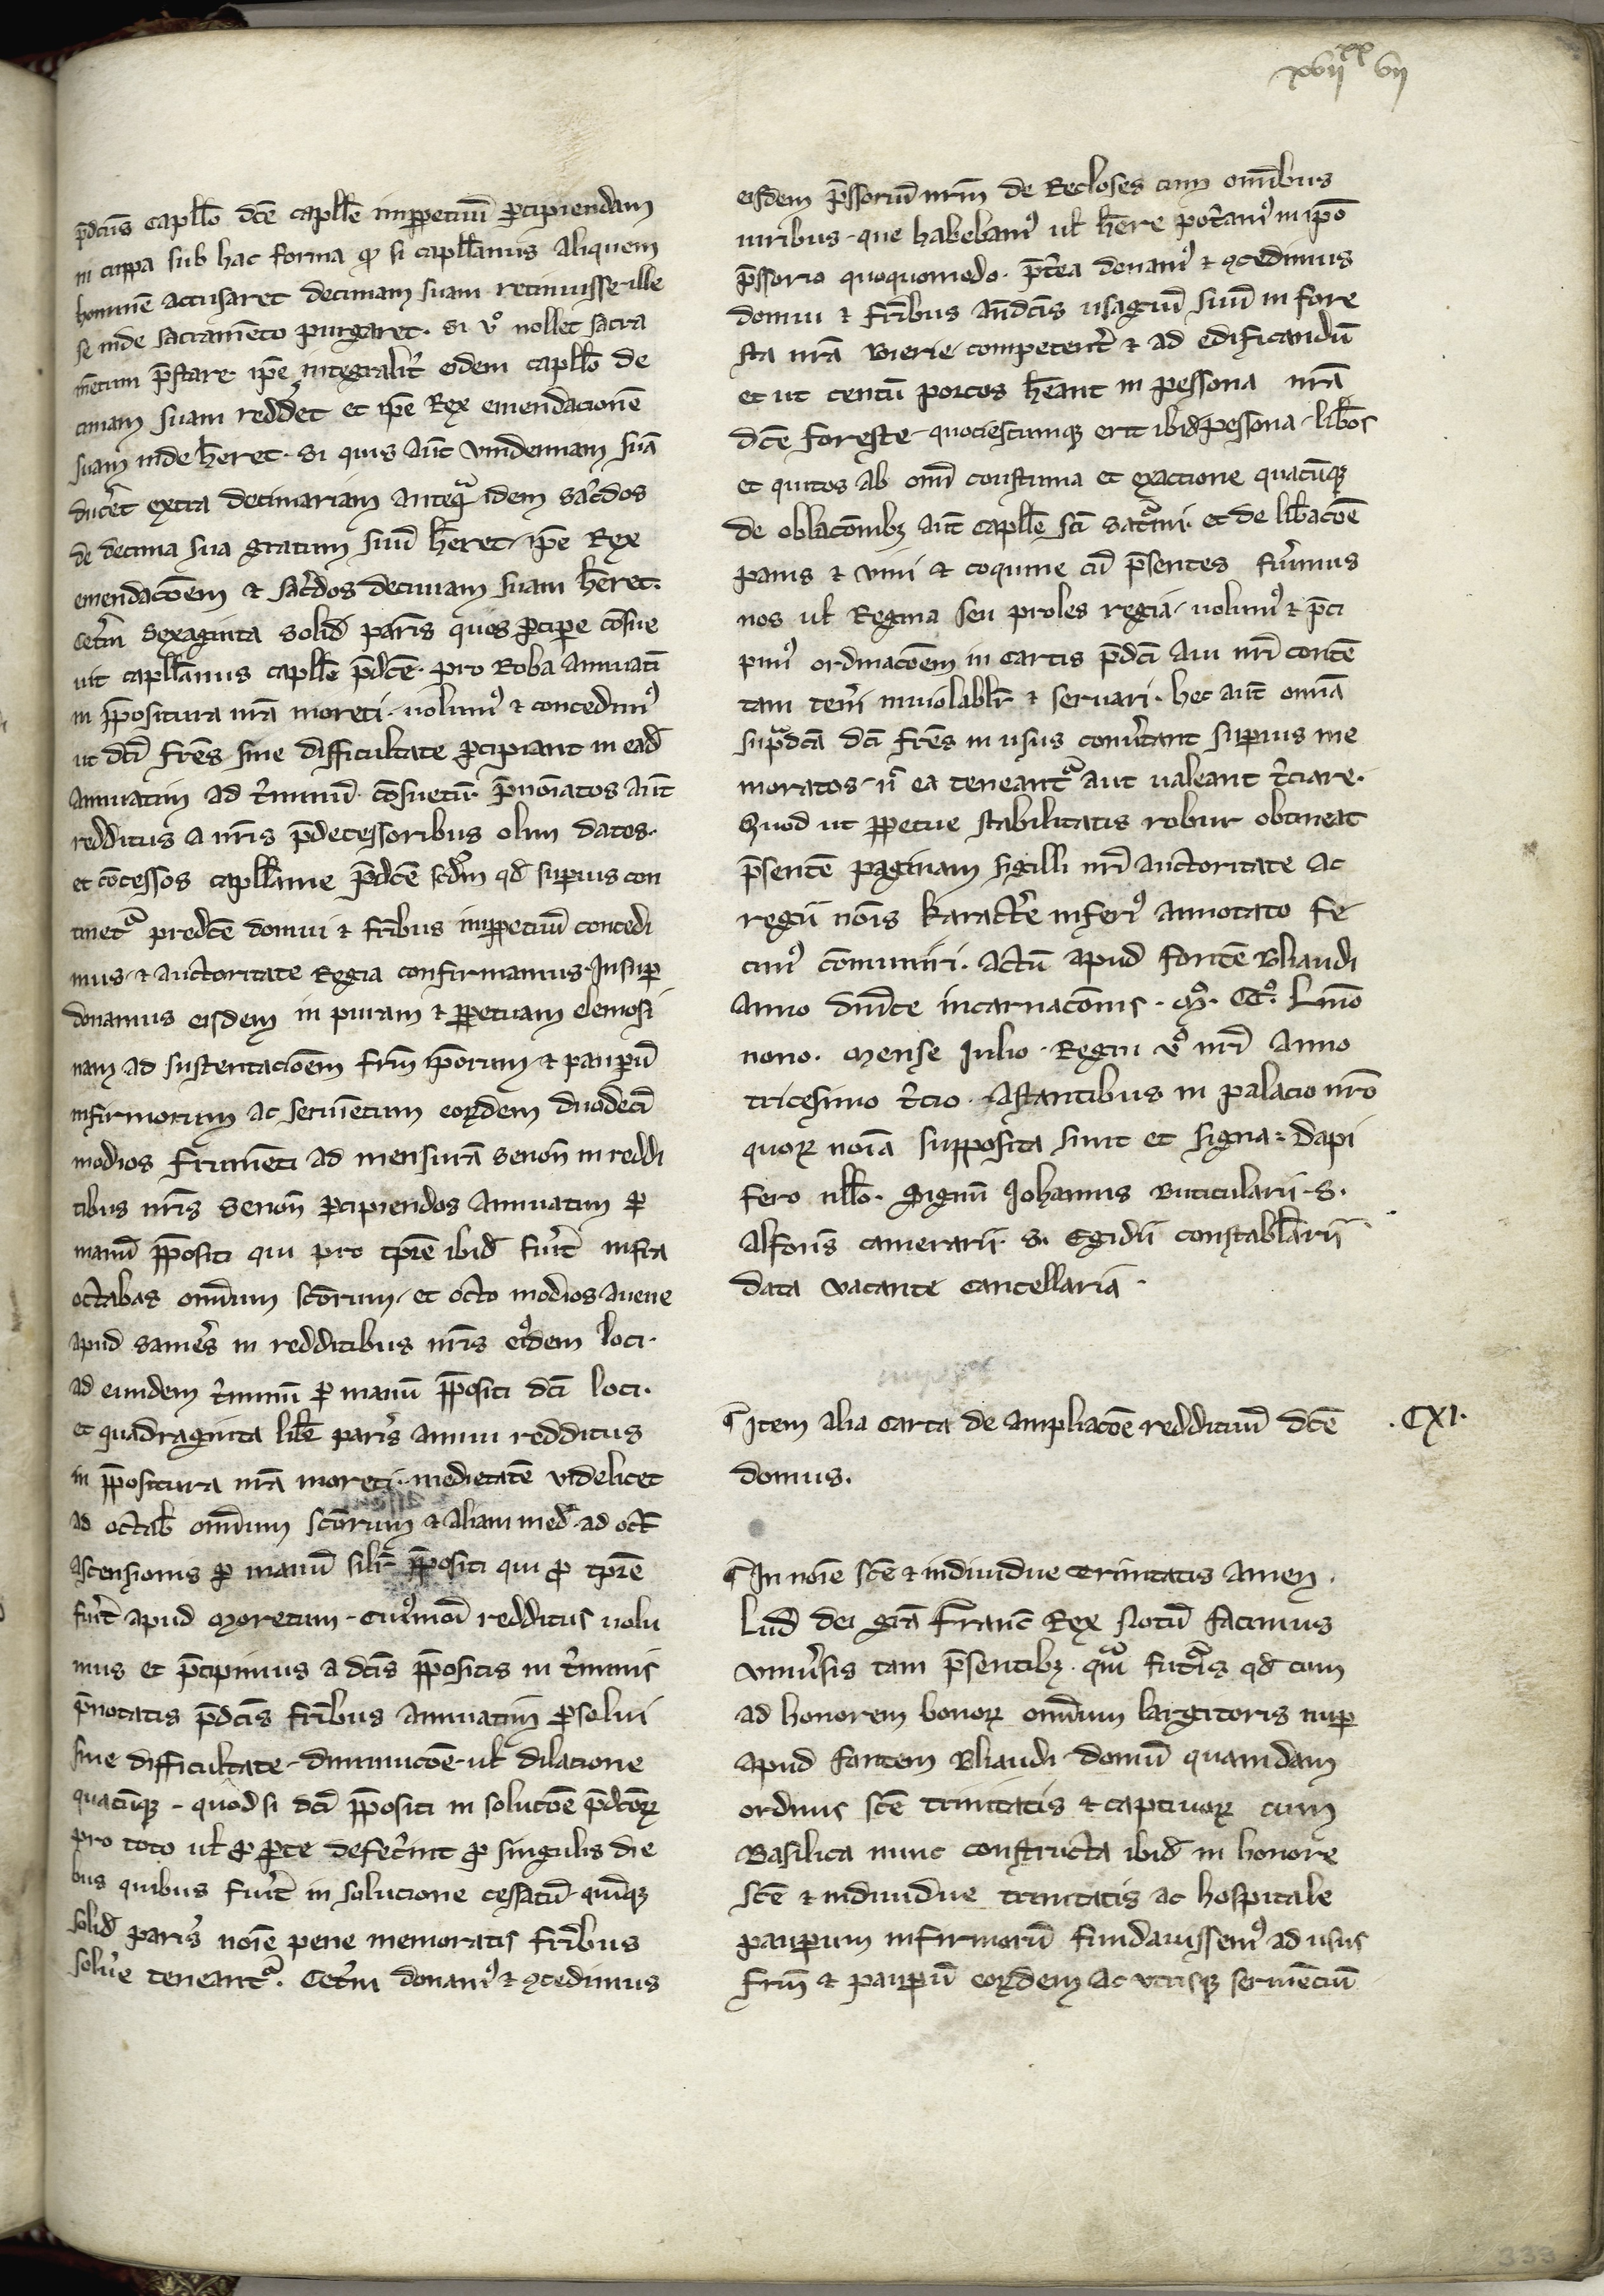 xvii xx vii
p̄dcm̄s capll̄o dc̄e capll̄e imꝑpetuū ꝑcipiendam
in cuppa sub hac forma ꝙ si capll̄anus aliquem
hominē accusaret decimam suam retinuisse ille
se inde sacramento purgaret. si v̊o nollet sacra
mētum p̄stare ip̄e integralit̉ eidem capll̄o de
cimam suam reddet et ip̄e Rex emendacionē
suam inde h̄eret. Si quis aūt vindemiam suā
ducēt extra decimariam anteqᵃ idem sac̉dos
de decima sua gratum suū h̄eret ip̄e Rex
emendacōem ⁊ sac̉dos decimam suam h̄eret.
cet̉m sexaginta solid̄ paris̄ quos ꝑcipe cōsue
uit capll̄anus capll̄e p̄dc̄e. pro Roba annuatī
in p̄positura nr̄a moreti. uolumꝰ ⁊ concedimꝰ
ut dc̄i fr̄es sine difficultate ꝑcipiant in ead̄
annuatim ad t̉minū cōsuetū. p̄noīatos aūt
redditus a nr̄is p̄decessoribus olim datos.
et cōcessos capll̄anie p̄dc̄e scd̄m qd̄ suꝑius con
tinetᵃ predc̄e domui ⁊ fr̄ibus imꝑpetuū concedi
mus. ⁊ auctoritate Regia confirmamus. Insuꝑ
donamus eisdem in puram ⁊ ꝑpetuam elemosi
nam ad sustentacioēm fr̄m ip̄orum ⁊ pauꝑū
infirmorum ac seruiētium eoꝝdem duodeci̅
modios frumēti ad mensurā senon̄ in reddi
tibus nr̄is senon̄ ꝑcipiendos annuatim ꝑ
manū p̄positi qui pro tp̄re ibid̄ fuīt infra
octabas om̄ium sc̄orum. et octo modios auene
apud sames̄ in redditibus nr̄is eiꝰdem loci.
ad eundem t̉minū ꝑ manū p̄positi dc̄i loci.
et quadraginta lib̄ paris̄ annui redditus
in p̄positura nr̄a moreti. medietatē videlicet
ad octab̄ om̄ium sc̄orum ⁊ aliam med̄. ad oct̄
ascensionis ꝑ manū silit̄ p̄positi qui ꝓ tp̄re
fuīt apud moretum. Cuiꝰmōi redditus uolu
mus et p̄cipimus a dc̄is p̄positis in t̉minis
p̄notatis p̄dc̄is fr̄ibus annuatim ꝑsolui
sine difficultate. diminucōe. ul̄ dilacione
quacūqꝫ. quod si dc̄i p̄positi in solucōe p̄dc̄orꝝ
pro toto ul̄ ꝓ ꝑte defec̄int ꝓ singulis die
bus quibus fuīt in solucione cessatū quīqꝫ
solid̄ paris̄ noīe pene memoratis fr̄ibus
solu̅e teneantᵃ. Cet̉m donamꝰ ⁊ ꝯcedimus
eisdem p̄ssoriū nr̄m de Recloses cum omībus
iuribus. que habebamꝰ ul̄ h̄ere potām̉ꝰ in ip̄o
p̄ssorio quoquomodo. p̄t̉ea donamꝰ ⁊ ꝯcedimus
domui ⁊ fr̄ibus an̄dc̄is usagiū suū in fore
sta nr̄a Bierie competent̉ ⁊ ad edificandū
et ut centū porcos h̄eant in pessona nr̄a
dc̄e foreste. quociescumqꝫ erit ibid̄ pessona. lib̄os
et quitos ab om̄i coustuma et exactione quacūqꝫ
de oblacōnibꝫ aūt capll̄e sc̄i satᵃini. et de lib̄acōe
panis ⁊ vini ⁊ coquine cū p̄sentes fuīmus
nos ul̄ Regina seu proles regia. uolumꝰ ⁊ p̄ci
pimꝰ ordinacōem in cartis p̄dc̄i aui nr̄i contē
tam ten̉i inuiolabl̄r ⁊ seruari. hec aūt om̄ia
supᵃdc̄a dc̄i fr̄es in usus conūtant suꝑius me
moratos. n̄ ea teneantᵃ aut ualeant t̉ciare.
Quod ut ꝑpetue stabilitatis robur obtineat
p̄sentē paginam sigilli nr̄i auctoritate ac
regii noīs karact̉e inferiꝰ annotato fe
cimꝰ cōmuniri. actū apud fontē Bliaudi
anno dn̄ice incarnacōnis. mͦ. CCͦ. Lmͦo
nono. mense Iulio. Regni v̊o nr̄i anno
tricesimo t̉cio. Astantibus in palacio nr̄o
quorꝝ noīa supposita sunt et signa. dapi
fero nll̄o. Signū Iohannis Buticularii. S.
Alfonsi camerarii. S. Egidii constabl̄arii
data vacante cancellaria.
¶ Item alia carta de ampliacōe reddituū dc̄e
.CXI.
domus.
¶ In noīe sc̄e ⁊ indiuidue trinitatis amen.
Lud̄ dei gr̄a Franc̄ Rex Notū facimus
vniu̅sis tam p̄sentibꝫ. qᵃm futᵃis qd̄ cum
ad honorem bonorꝝ om̄ium largitoris nuꝑ
apud fontem Bliaudi. domū quamdam
ordinis sc̄e trinitatis ⁊ captiuorꝝ cum
Basilica nunc constructa ibid̄ in honore
sc̄e ⁊ indiuidue trinitatis ac hospitale
pauꝑum infirmorū fundauissemꝰ ad usus
fr̄m ⁊ pauꝑū eorꝝdem ac vtrisqꝫ seruiēciū
333